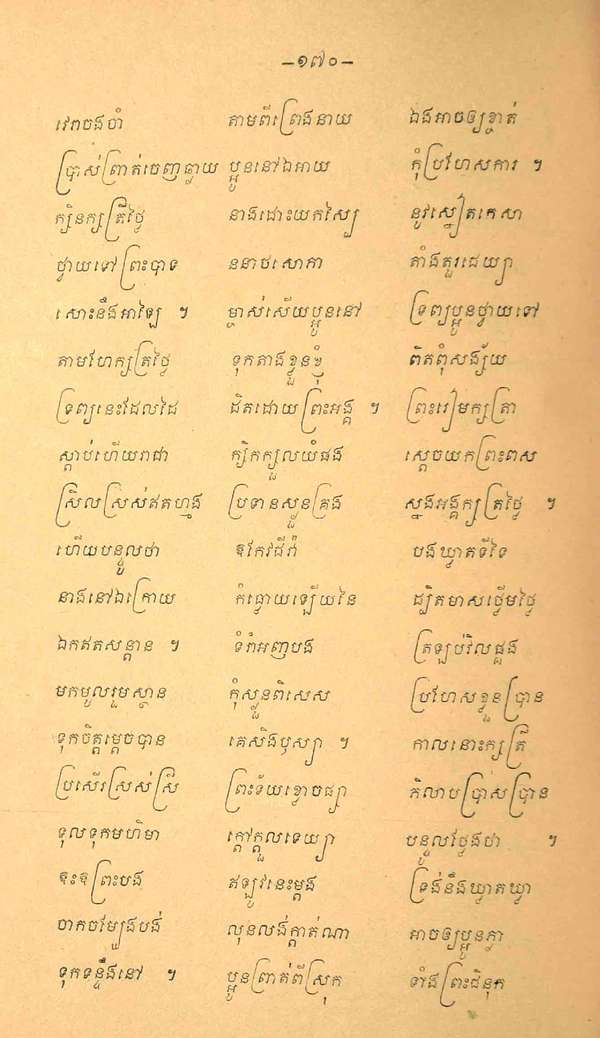 –១៧០–
វេរាចងចាំ តាមពីព្រេងនាយ ឯងអាចឲ្យខ្ចាត់
ប្រាស់ព្រាត់ចេញឆ្ងាយ ប្អូននៅឯអាយ កុំប្រហែសការ ។
ក្សិនក្សត្រីថ្ងៃ នាងដោះយកស្បៃ នូវស្នៀតកេសា
ថ្វាយទៅព្រះបាទ ននាថសោកា តាំងតួរជេយ្យា
សោះនឹងអាឡៃ ។ ម្ចាស់សើយប្អូននៅ ទ្រព្យប្អូនថ្វាយទៅ
តាមហែក្សត្រថ្ងៃ ទុកតាងខ្លួនខ្ញុំ ពិតពុំសង្ស័យ
ទ្រព្យនេះដែលដៃ ជិតដោយព្រះអង្គ ។ ព្រះរៀមក្សត្រា
ស្តាប់ហើយរាជា ក្សិកក្សួលយំផង ស្តេចយកព្រះពស
ស្រិលស្រស់ឥតហ្មង ប្រទានស្ងួនគ្រង ស្នងអង្គក្សត្រថ្ងៃ ។
ហើយបន្ទូលថា ឱកែវជីវ៉ា បងឃ្វាតទីទៃ
នាងនៅឯក្រោយ កំផ្វោយឡើយនៃ ដ្បិតមាសថ្លើមថ្ងៃ
ឯកឥតសន្តាន ។ ទំរាំអញបង ត្រឡប់វិលផ្គង
មកមូលរួមស្ថាន កុំស្ងួនពិសេស ប្រហែសខ្លួនប្រាន
ទុកចិត្តម្តេចបាន គេសឹងឫស្យា ។ កាលនោះក្សត្រី
ប្រសើរស្រស់ស្រី ព្រះទ័យខ្ទោចផ្សា ភិលាបប្រាស់ប្រាន
ទុលទុកមហិមា ក្តៅក្តួលទេយ្យា បន្ទូលថ្លែងថា ។
ឱះឱព្រះបង ឥឡូវនេះម្តង ទ្រង់នឹងឃ្វាតឃ្វា
ចាកចម្បែងបង់ លុនលង់ក្តាត់ណា អាចឲ្យប្អូនក្លា
ទុកទន្ទឹងនៅ ។ ប្អូនព្រាត់ពីស្រុក ទាំងព្រះជិនុក